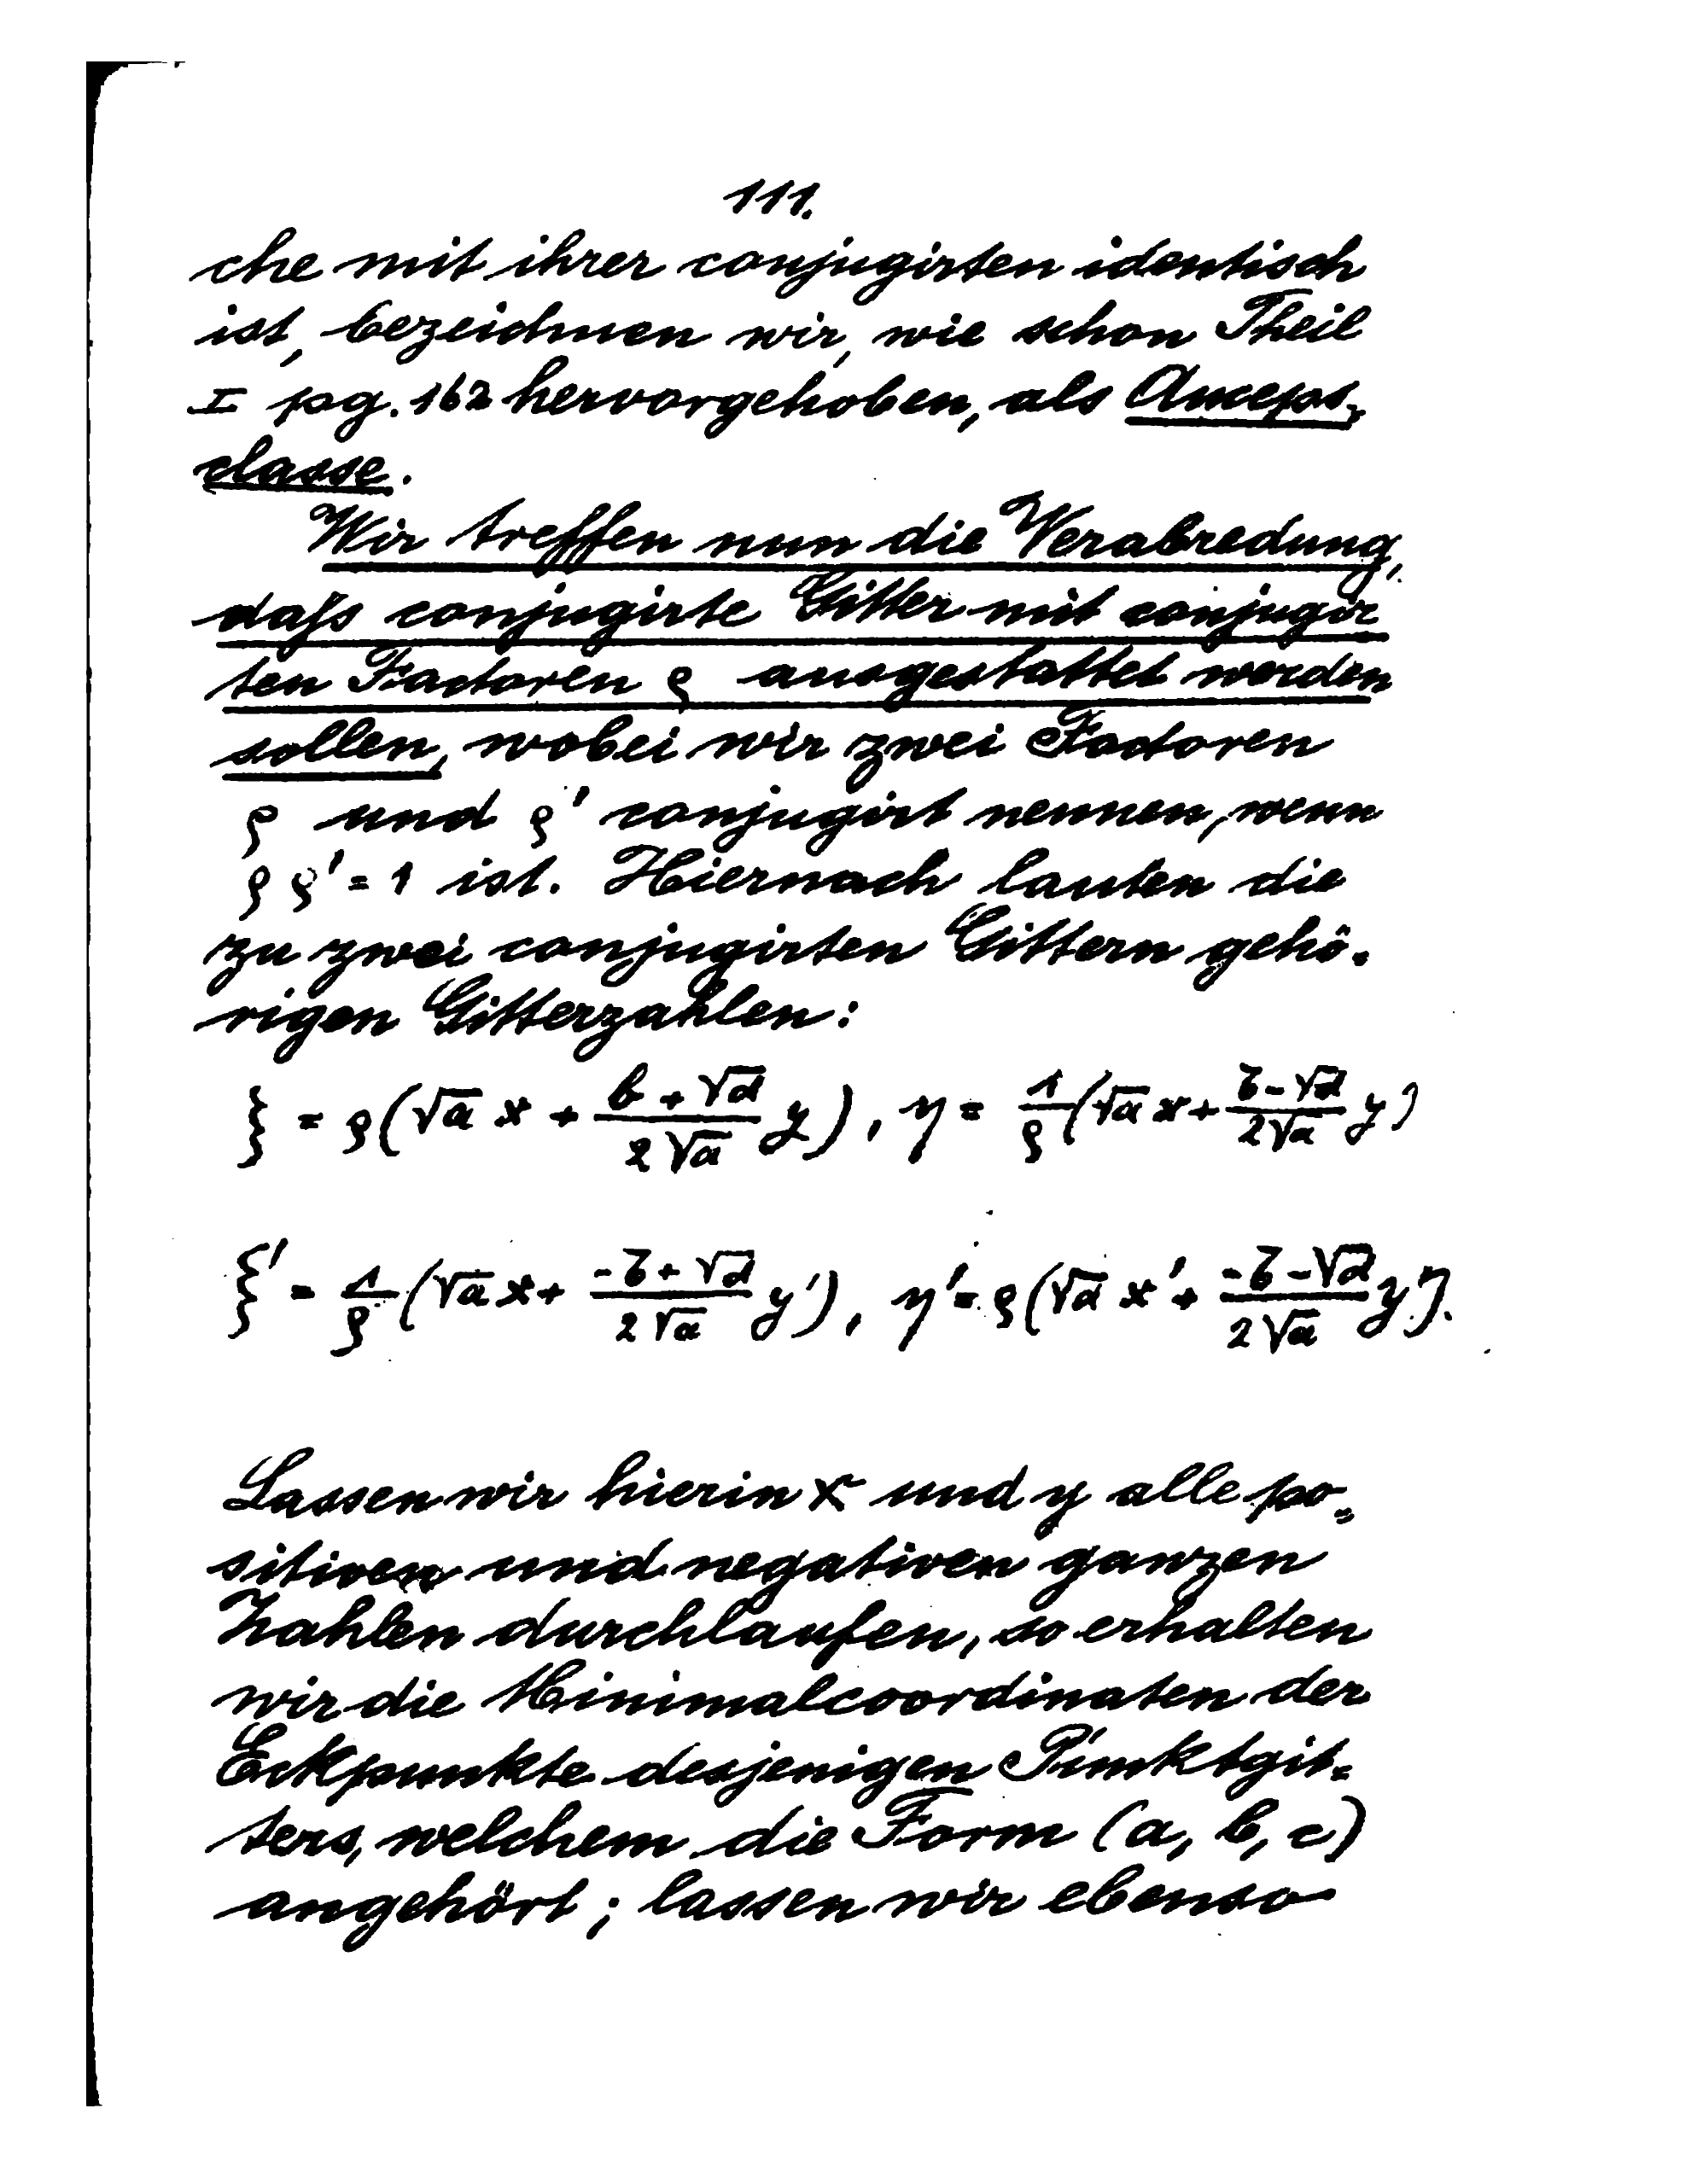 111.
che mit ihrer conjugirten identisch
ist, bezeichnen wir, wie schon Theil
I pg. 162 hervorgehoben, als Anceps-
classe.
Wir treffen nun die Verabredung,
daſs conjugirte Gitter mit conjugir
ten Factoren ρ ausgestattet werden
sollen, wobei wir zwei Factoren
ρ und ρ' conjugirt nennen, wenn
ρ ρ' = 1 ist. Hiernach lauten die
zu zwei conjugirten Gittern gehö-
rigen Gitterzahlen:
ξ = ρ(√a x + (b + √d)/(2√a) y), η = 1/ρ (√a x + (b - √d)/(2√a) y)
ξ' = 1/ρ (√a x + (-b + √d)/(2√a) y'), η' = ρ(√a x' + (-b - √d)/(2√a) y').
Lassen wir hierin x und y alle po-
sitiven und negativen ganzen
Zahlen durchlaufen, so erhalten
wir die Minimalcoordinaten der
Eckpunkte desjenigen Punktgit-
ters, welchem die Form (a, b, c)
angehört; lassen wir ebenso